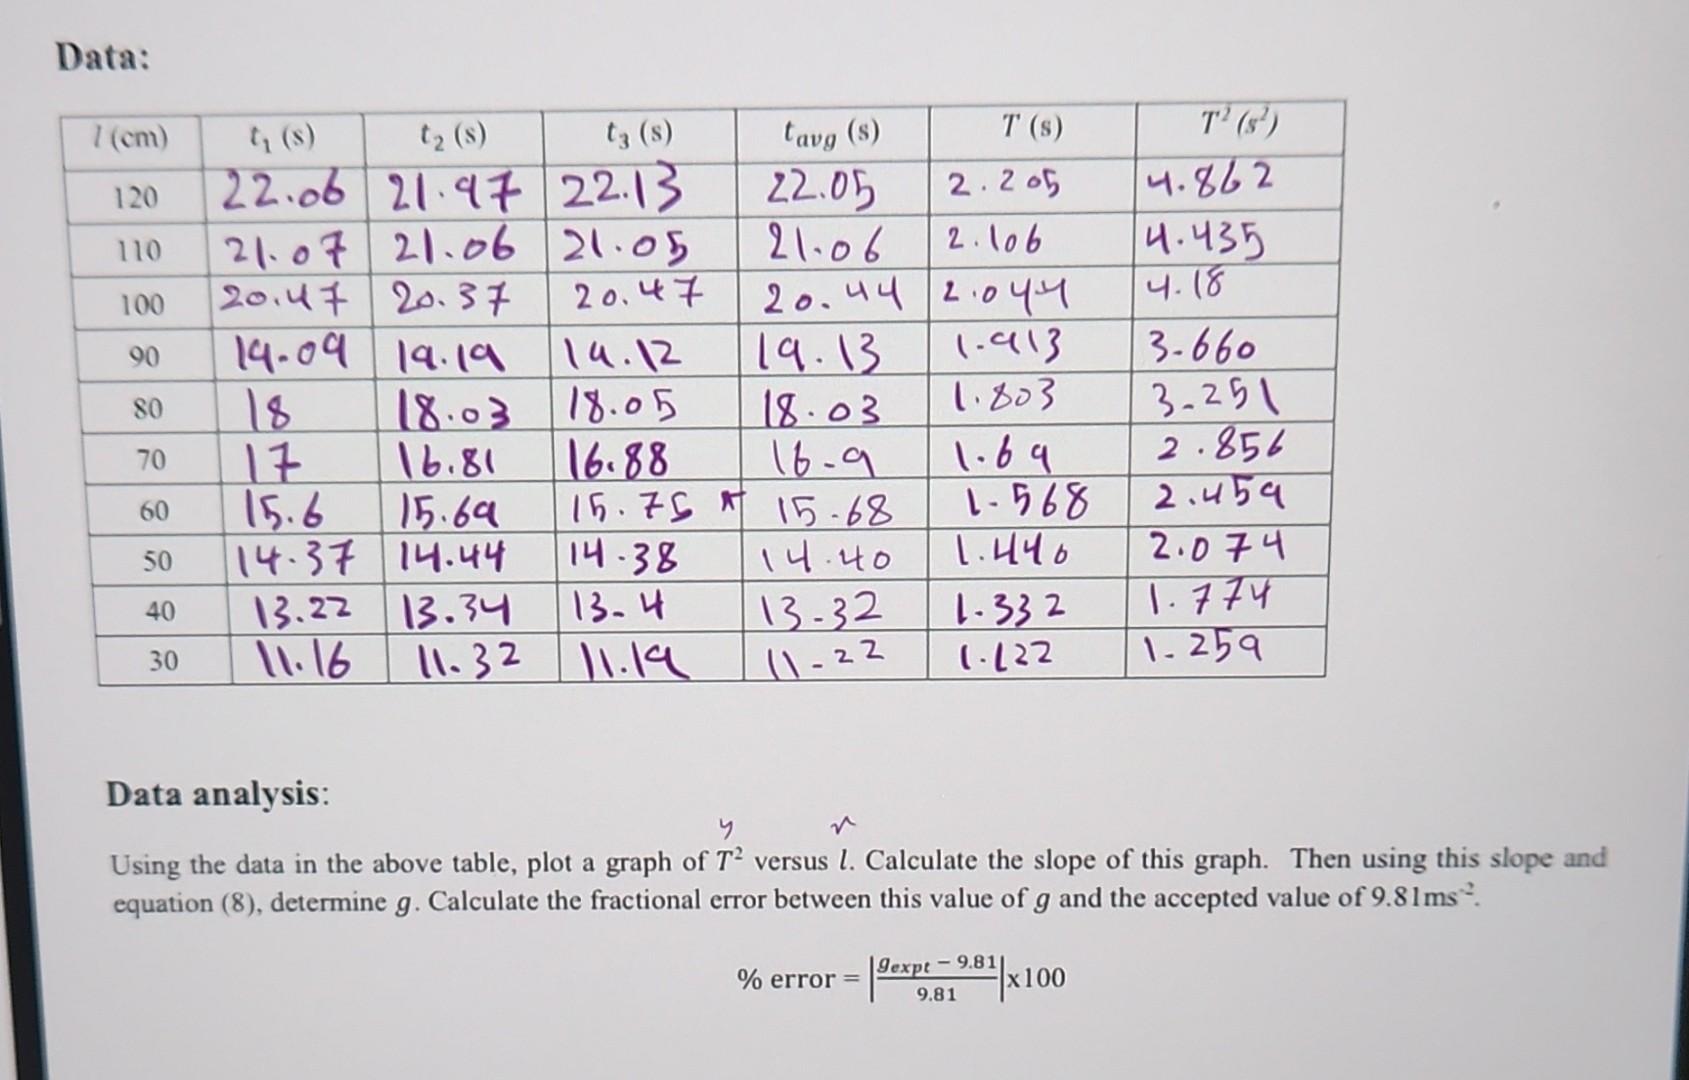 Data:
l (cm) t₁ (s) t₂ (s) t₃ (s) tavg (s) T (s) T² (s²)
120 22.06 21.97 22.13 22.05 2.205 4.862
110 21.07 21.06 21.05 21.06 2.106 4.435
100 20.47 20.37 20.47 20.44 2.044 4.18
90 19.09 19.19 19.12 19.13 1.913 3.660
80 18 18.03 18.05 18.03 1.803 3.251
70 17 16.81 16.88 16.9 1.69 2.856
60 15.6 15.69 15.75 * 15.68 1.568 2.459
50 14.37 14.44 14.38 14.40 1.440 2.074
40 13.22 13.34 13.4 13.32 1.332 1.774
30 11.16 11.32 11.19 11.22 1.122 1.259
Data analysis:
y x
Using the data in the above table, plot a graph of T² versus l. Calculate the slope of this graph. Then using this slope and
equation (8), determine g. Calculate the fractional error between this value of g and the accepted value of 9.81ms⁻².
% error = |(gexpt − 9.81)/9.81|x100